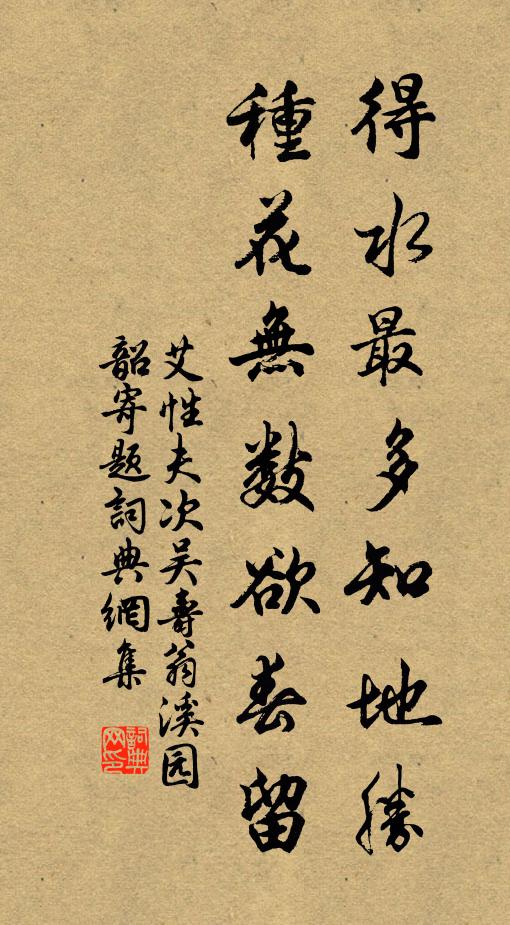 得水最多知地勝
種花無數欲春留
艾性夫次吴壽翁溪园
韶寄题詞典網集
詞典网印